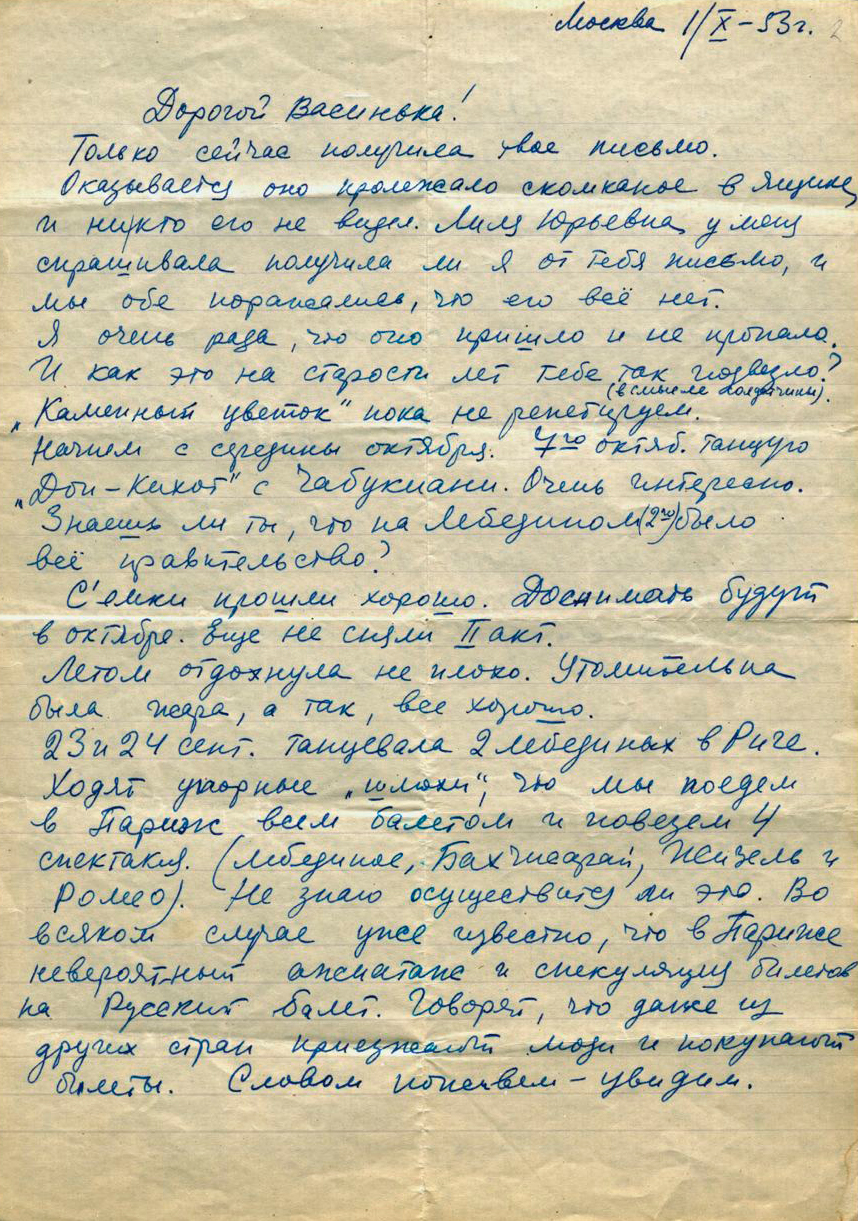 Москва 1/X – 53 г. 2
Дорогой Васинька!
Только сейчас получила твое письмо.
Оказывается оно пролежало скомканое в ящике,
и никто его не видел. Лиля Юрьевна у меня
спрашивала получила ли я от тебя письмо, и
мы обе поражались, что его всё нет.
Я очень рада, что оно пришло и не пропало.
И как это на старости лет тебе так повезло?
(в смысле солдатчины).
„Каменный цветок" пока не репетируем.
Начнем с середины октября. 7го октяб. танцую
„Дон-Кихот" с Чабукиани. Очень интересно.
Знаешь ли ты, что на Лебедином (2го) было
всё правительство?
С'емки прошли хорошо. Доснимать будут
в октябре. Еще не сняли II акт.
Летом отдохнула не плохо. Утомительна
была жара, а так, все хорошо.
23 и 24 сент. танцевала 2 лебединых в Риге.
Ходят упорные „шлюхи", что мы поедем
в Париж всем балетом и повезем 4
спектакля. (Лебединое, Бахчисарай, Жизель и
Ромео). Не знаю осуществится ли это. Во
всяком случае уже известно, что в Париже
невероятный ажиатаж и спекуляция билетов
на Русский балет. Говорят, что даже из
других стран приезжают люди и покупают
билеты. Словом поживем – увидим.